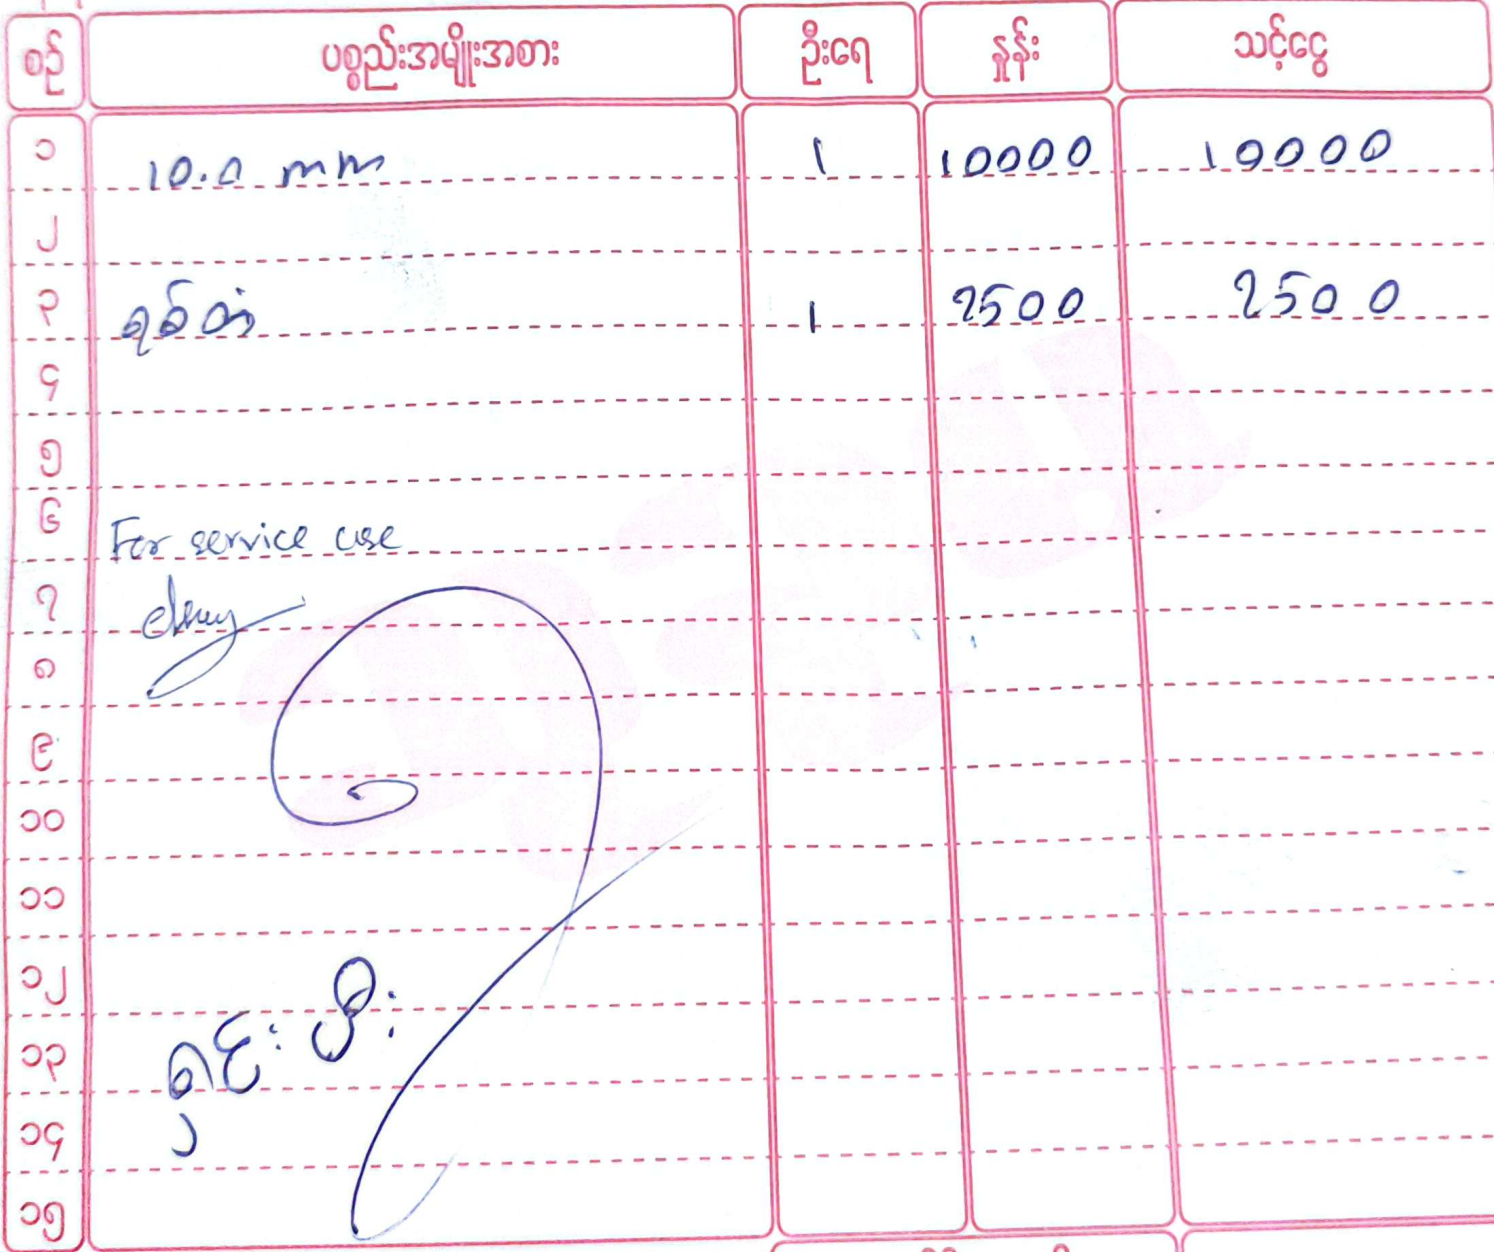 စဉ် ပစ္စည်းအမျိုးအစား ဦးရေ နှုန်း သင့်ငွေ
၁ 10.0 mm 1 10000 10000
၂
၃ ရစ်တံ 1 2500 2500
၄
၅
၆ For service use
၇
၈
၉
၁၀
၁၁
၁၂
၁၃ ရှင်းပြီး
၁၄
၁၅